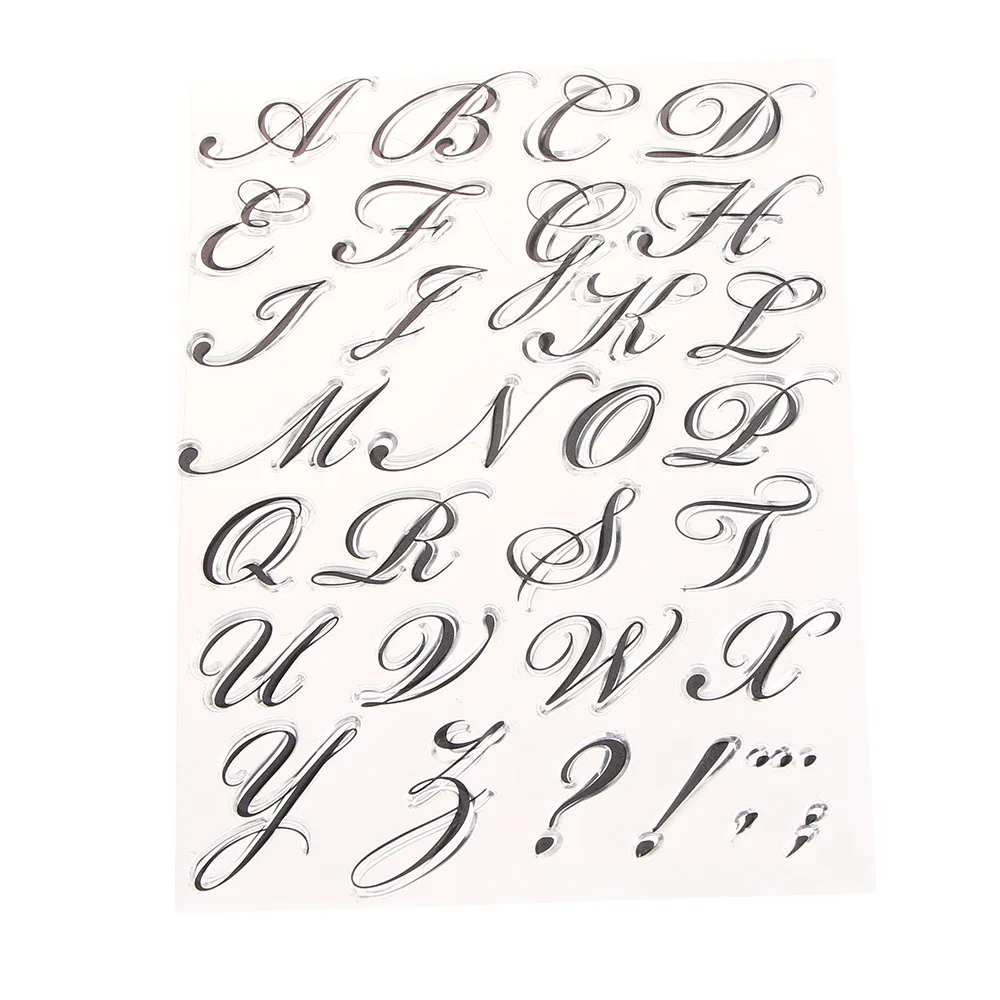 A B C D
E F G H
I J K L
M N O P
Q R S T
U V W X
Y Z ? ! ... , ;